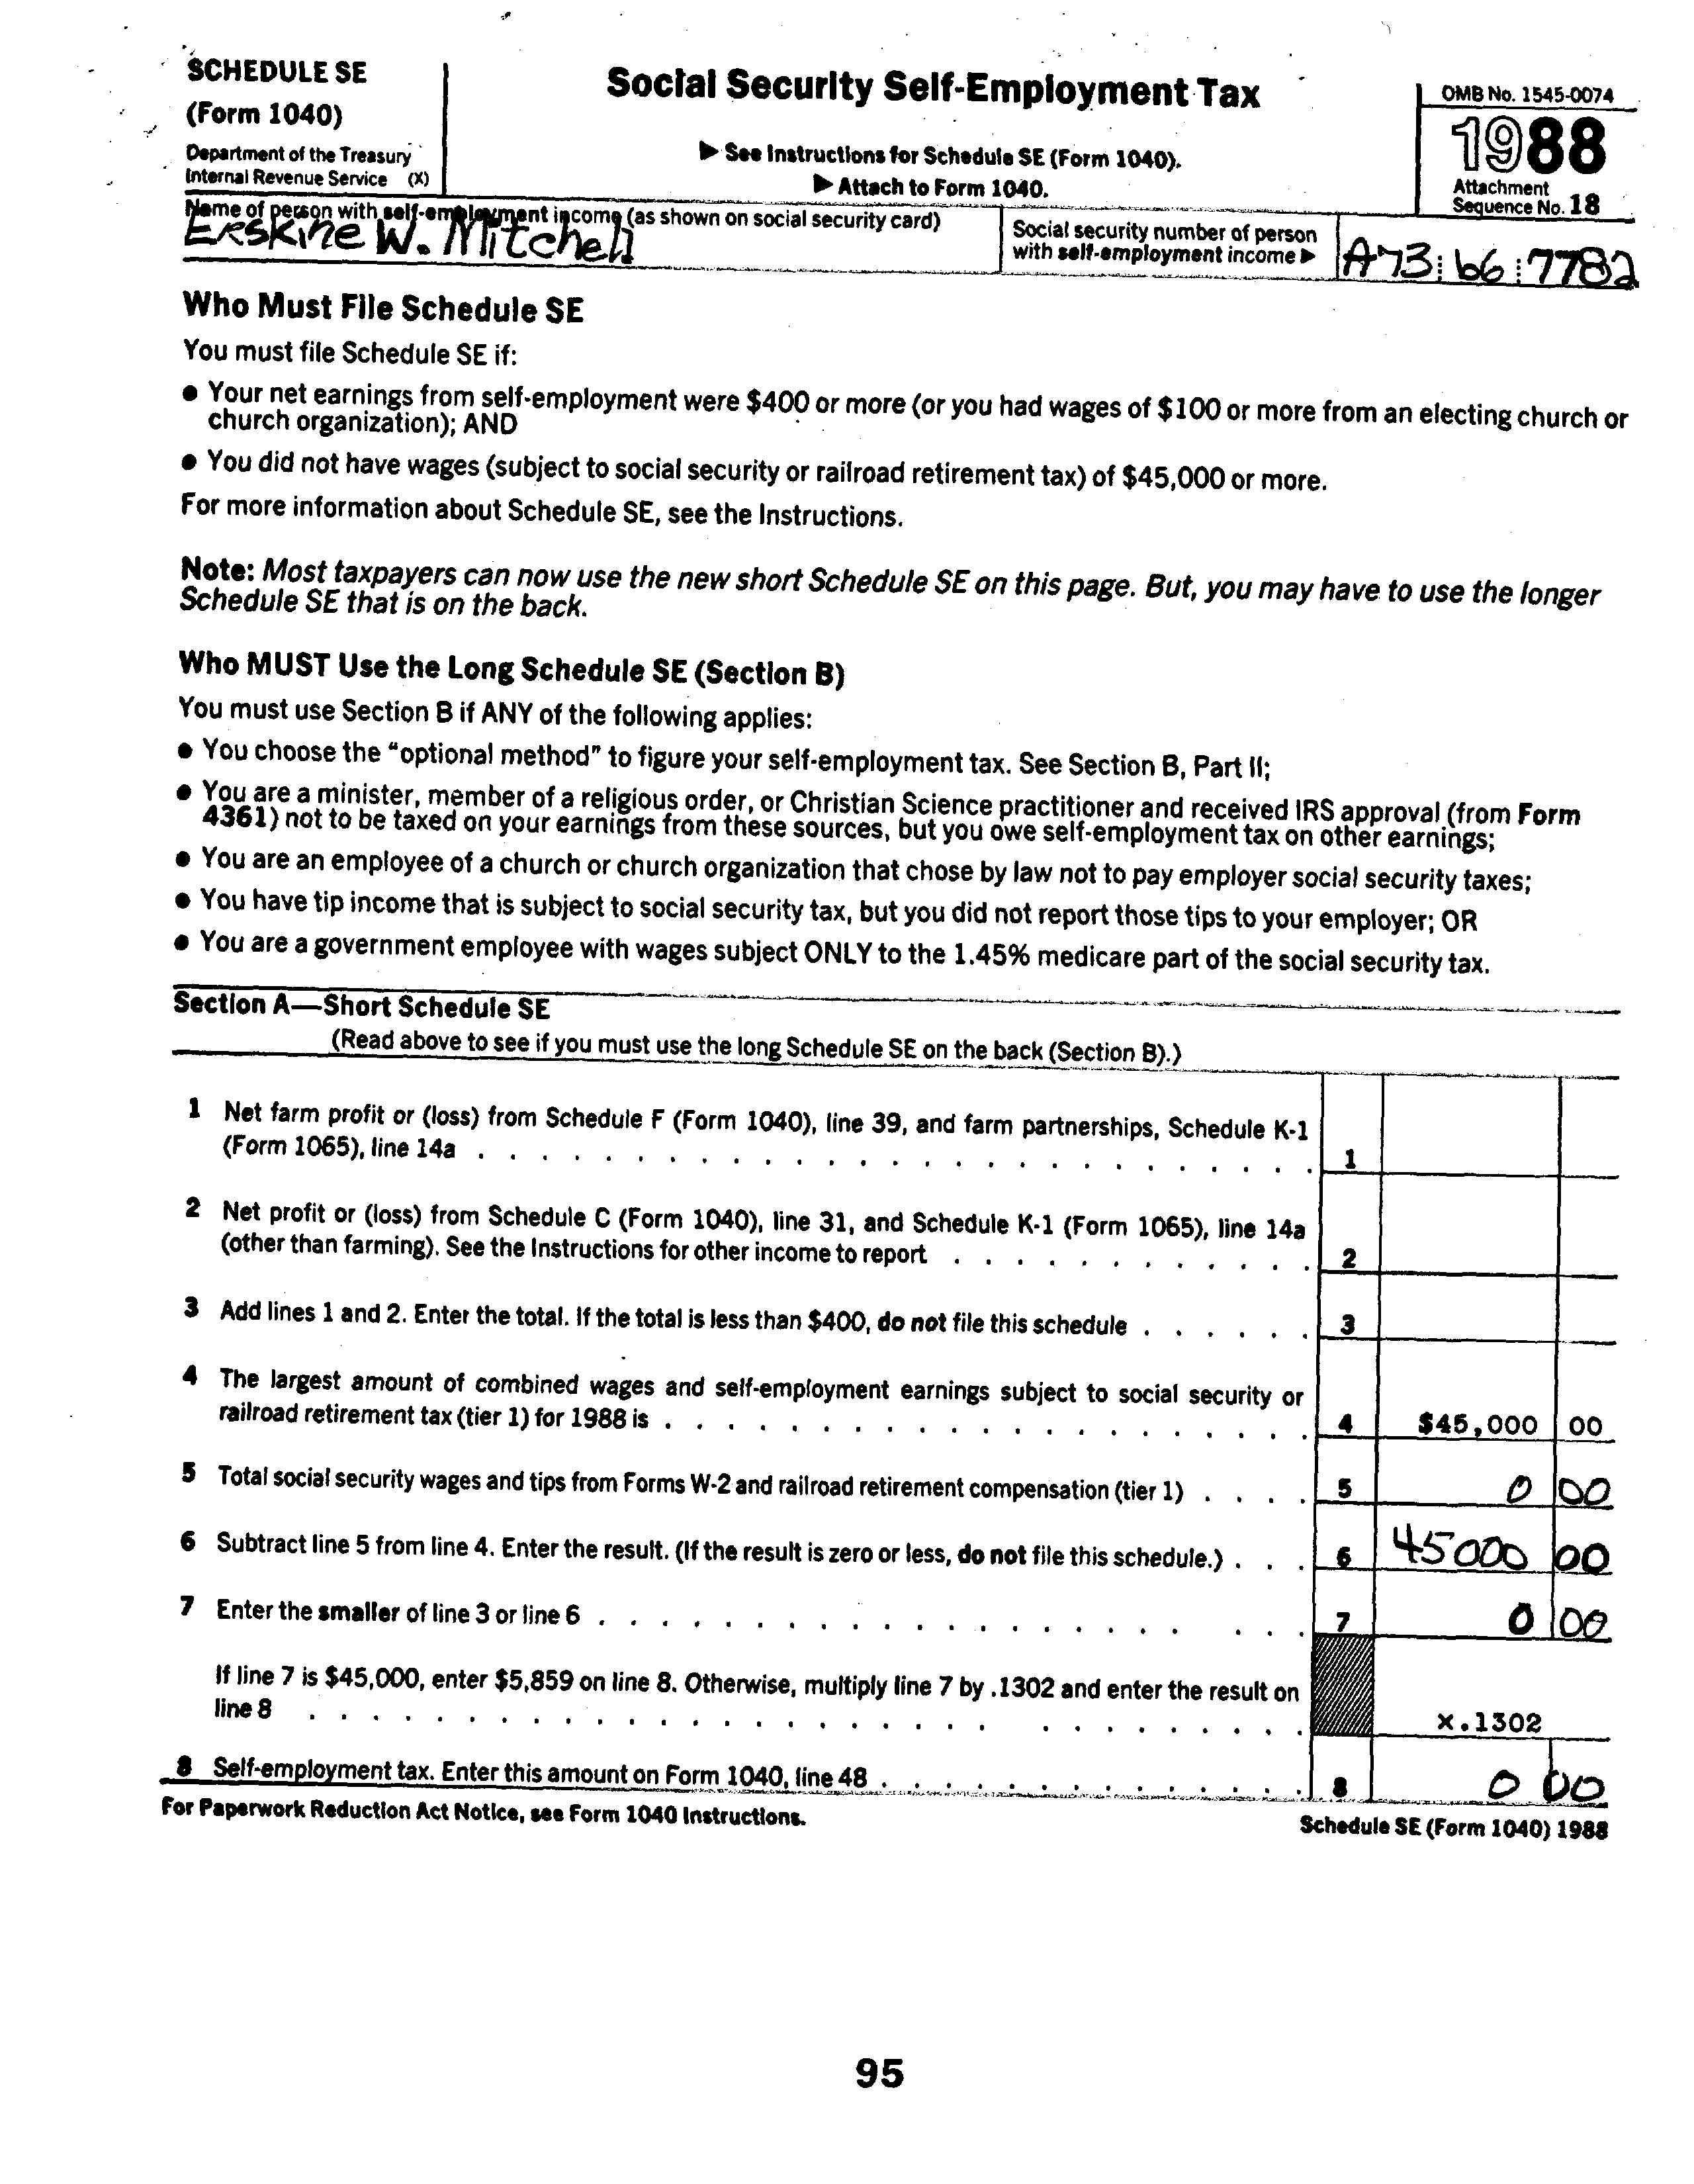 SCHEDULE SE
(Form 1040)
Department of the Treasury
Internal Revenue Service (X)
Social Security Self-Employment Tax
▶ See Instructions for Schedule SE (Form 1040).
▶ Attach to Form 1040.
OMB No. 1545-0074
1988
Attachment
Sequence No. 18
Name of person with self-employment income (as shown on social security card)
Erskine W. Mitchell
Social security number of person
with self-employment income ▶
A73:66:7782
Who Must File Schedule SE
You must file Schedule SE if:
● Your net earnings from self-employment were $400 or more (or you had wages of $100 or more from an electing church or
church organization); AND
● You did not have wages (subject to social security or railroad retirement tax) of $45,000 or more.
For more information about Schedule SE, see the Instructions.
Note: Most taxpayers can now use the new short Schedule SE on this page. But, you may have to use the longer
Schedule SE that is on the back.
Who MUST Use the Long Schedule SE (Section B)
You must use Section B if ANY of the following applies:
● You choose the “optional method” to figure your self-employment tax. See Section B, Part II;
● You are a minister, member of a religious order, or Christian Science practitioner and received IRS approval (from Form
4361) not to be taxed on your earnings from these sources, but you owe self-employment tax on other earnings;
● You are an employee of a church or church organization that chose by law not to pay employer social security taxes;
● You have tip income that is subject to social security tax, but you did not report those tips to your employer; OR
● You are a government employee with wages subject ONLY to the 1.45% medicare part of the social security tax.
Section A—Short Schedule SE
(Read above to see if you must use the long Schedule SE on the back (Section B).)
1 Net farm profit or (loss) from Schedule F (Form 1040), line 39, and farm partnerships, Schedule K-1
(Form 1065), line 14a . . . . . . . . . . . . . . . . . . . . . . . . . . . 1
2 Net profit or (loss) from Schedule C (Form 1040), line 31, and Schedule K-1 (Form 1065), line 14a
(other than farming). See the Instructions for other income to report . . . . . . . . . . . . 2
3 Add lines 1 and 2. Enter the total. If the total is less than $400, do not file this schedule . . . . . . 3
4 The largest amount of combined wages and self-employment earnings subject to social security or
railroad retirement tax (tier 1) for 1988 is . . . . . . . . . . . . . . . . . . . . . 4 $45,000 00
5 Total social security wages and tips from Forms W-2 and railroad retirement compensation (tier 1) . . . . 5 0 00
6 Subtract line 5 from line 4. Enter the result. (If the result is zero or less, do not file this schedule.) . . . 6 45000 00
7 Enter the smaller of line 3 or line 6 . . . . . . . . . . . . . . . . . . . . . . 7 0 00
If line 7 is $45,000, enter $5,859 on line 8. Otherwise, multiply line 7 by .1302 and enter the result on
line 8 . . . . . . . . . . . . . . . . . . . . . . . . . . . . . . x.1302
8 Self-employment tax. Enter this amount on Form 1040, line 48 . . . . . . . . . . . . . . 8 0 00
For Paperwork Reduction Act Notice, see Form 1040 Instructions.
Schedule SE (Form 1040) 1988
95